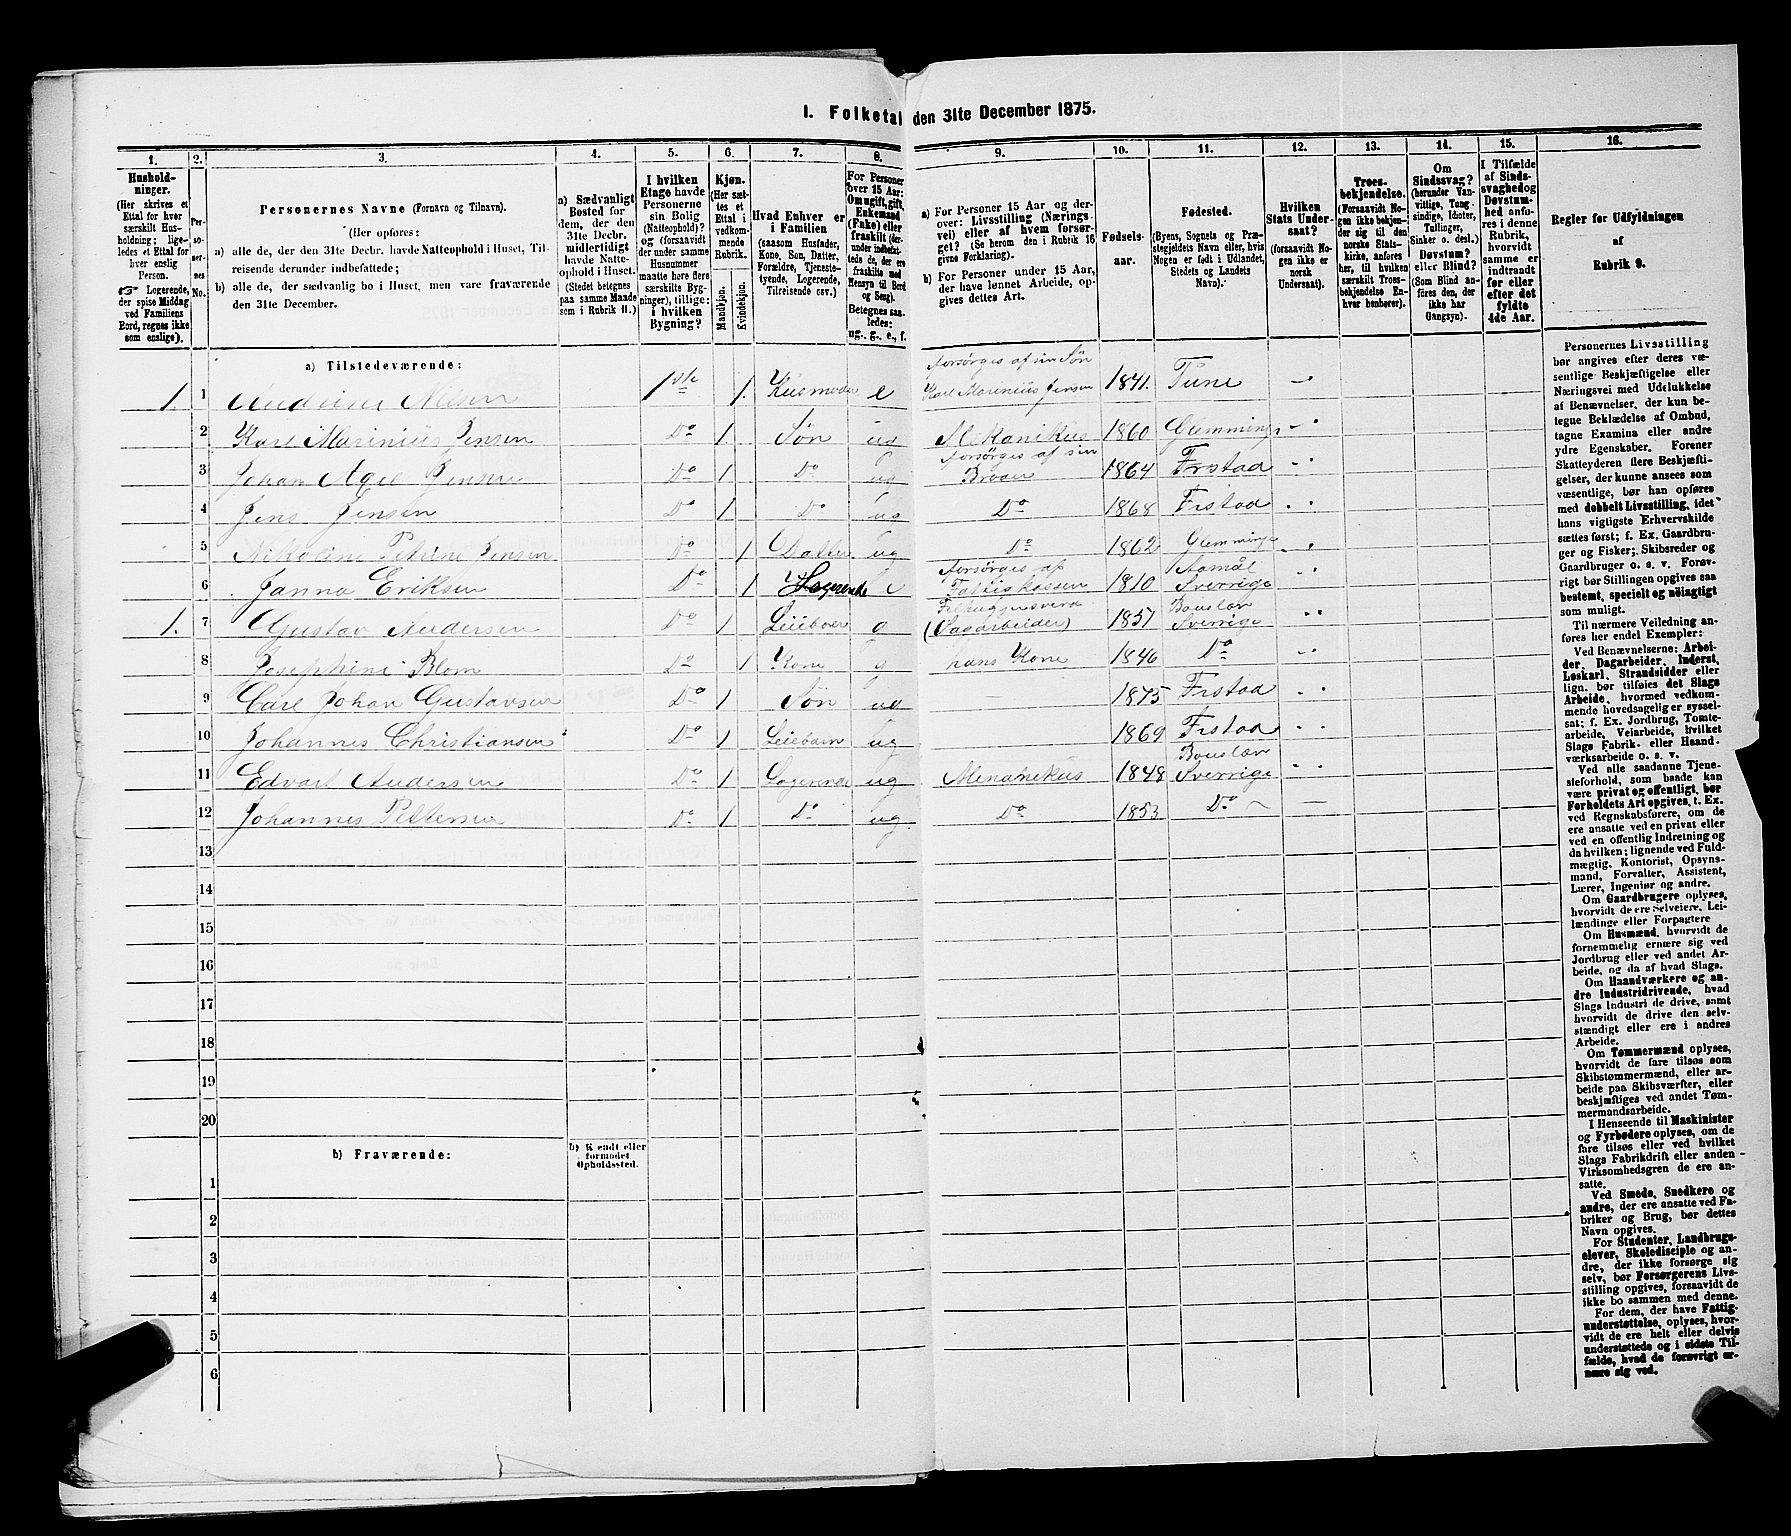 1. Folketal den 31te December 1875.
1.
2.
3.
4.
5.
6.
7.
8.
9.
10.
11.
12.
13.
14.
15.
16.
Hushold-
ninger.
(Her skrives et
Ettal for hver
særskilt Hus-
holdning; lige-
ledes et Ettal for
hver enslig
Person.
☞ Logerende,
der spise Middag
ved Familiens
Bord, regnes ikke
som enslige).
Per-
so-
ner-
nes
No.
Personernes Navne (Fornavn og Tilnavn).
(Her opføres:
a) alle de, der den 31te Decbr. havde Natteophold i Huset, Til-
reisende derunder indbefattede;
b) alle de, der sædvanlig bo i Huset, men vare fraværende
den 31te December.
a) Sædvanligt
Bosted for
dem, der den
31te Decbr.
midlertidigt
havde Natte-
ophold i Huset.
(Stedet betegnes
paa samme Maade
som i Rubrik 11.)
I hvilken
Etage havde
Personerne
sin Bolig
(Natteophold)?
og (forsaavidt
der under samme
Husnummer
maatte høre flere
særskilte Byg-
ninger), tillige:
i hvilken
Bygning?
Kjøn.
(Her sæt-
tes et
Ettal i
vedkom-
mende
Rubrik.
Mandkjøn.
Kvindekjøn.
Hvad Enhver er
i Familien
(saasom Husfader,
Kone, Søn, Datter,
Forældre, Tjeneste-
tyende, Logerende,
Tilreisende osv.).
For Personer
over 15 Aar:
Om ugift, gift,
Enkemand
(Enke) eller
fraskilt (der-
under indbefat-
tede de, der ere
fraskilte med
Hensyn til Bord
og Seng).
Betegnes saa-
ledes:
ug., g., e., f.
a) For Personer 15 Aar og der-
over: Livsstilling (Nærings-
vei) eller af hvem forsør-
get? (Se herom den i Rubrik 16
givne Forklaring).
b) For Personer under 15 Aar,
der have lønnet Arbeide, op-
gives dettes Art.
Fødsels-
aar.
Fødested.
(Byens, Sognets og Præ-
stegjeldets Navn eller, hvis
Nogen er født i Udlandet,
Stedets og Landets
Navn).
Hvilken
Stats Under-
saat?
(forsaavidt No-
gen ikke er
norsk
Undersaat).
Troes-
bekjendelse.
(Forsaavidt No-
gen ikke bekjen-
der sig til den
norske Stats-
kirke, anføres
her, til hvilken
særskilt Troes-
bekjendelse En-
hver henhører).
Om
Sindssvag?
(herunder Van-
vittige, Tung-
sindige, Idioter,
Tullinger,
Sinker o. desl.)
Døvstum?
eller Blind?
(Som Blind an-
føres den, der
ikke har
Gangsyn).
I Tilfælde
af Sinds-
svaghed og
Døvstum-
hed anfø-
res i denne
Rubrik,
hvorvidt
samme er
indtraadt
før eller
efter det
fyldte
4de Aar.
Regler for Udfyldningen
af
Rubrik 9.
a) Tilstedeværende:
1. 1 Andrine Nilsen 1ste 1. Husmoder e forsørges af sin Søn Karl Marinius Jensen 1841. Tune
2 Karl Marinius Jensen Do 1 Søn ug Mekanikus 1860 Glemminge
3 Johan Axel Jensen Do 1 Do ug forsørges af sin Broder 1864 Frstad
4 Jens Jensen Do 1 Do ug Do 1868 Frstad
5 Nikoline Petrine Jensen Do 1 Datter ug Do 1862 Glemminge
6 Janna Eriksen Do 1 Logerende e forsørges af Fattigkassen 1810 Aamål Sverrige
1. 7 Gustav Andersen Do 1 Leieboer g (Sagarbeider) 1851 Bouslän Sverrige
8 Josephine Blom Do 1 Kone g hans Kone 1846 Do
9 Carl Johan Gustavsen Do 1 Søn ug 1875 Frstad
10 Johannes Christiansen Do 1 Leiebarn ug 1869 Frstad
11 Edvart Andersen Do 1 Logerende ug Mekanekus 1848 Bouslän Sverrige
12 Johannes Pettersen Do 1 Do ug. Do 1853 Do
13
14
15
16
17
18
19
20
b) Fraværende:
b) Kjendt eller
formodet
Opholdssted.
1
2
3
4
5
6
Personernes Livsstilling
bør angives efter deres væ-
sentlige Beskjæftigelse eller
Næringsvei med Udelukkelse
af Benævnelser, der kun be-
tegne Beklædelse af Ombud,
tagne Examina eller andre
ydre Egenskaber. Forener
Skatteyderen flere Beskjæfti-
gelser, der kunne ansees som
væsentlige, bør han opføres
med dobbelt Livsstilling, idet
hans vigtigste Erhvervskilde
sættes først; f. Ex. Gaardbru-
ger og Fisker; Skibsreder og
Gaardbruger o. s. v. Forøv-
rigt bør Stillingen opgives saa
bestemt, specielt og nøiagtigt
som muligt.
Til nærmere Veiledning an-
føres her endel Exempler:
Ved Benævnelserne: Arbei-
der, Dagarbeider, Inderst,
Løskarl, Strandsidder eller
lign. bør tilføies det Slags
Arbeide, hvormed vedkom-
mende hovedsagelig er syssel-
sat; f. Ex. Jordbrug, Tomte-
arbeide, Veiarbeide, hvilket
Slags Fabrik- eller Haand-
værksarbeide o. s. v.
Ved alle saadanne Tjene-
steforhold, som baade kan
være privat og offentligt, bør
Forholdets Art opgives, t. Ex.
ved Regnskabsførere, om de
ere ansatte ved en privat eller
ved en offentlig Indretning og
da hvilken; lignende ved Fuld-
mægtig, Kontorist, Opsyns-
mand, Forvalter, Assistent,
Lærer, Ingeniør og andre.
Om Gaardbrugere oplyses,
hvorvidt de ere Selveiere, Lei-
lændinge eller Forpagtere
Om Husmænd, hvorvidt de
fornemmelig ernære sig ved
Jordbrug eller ved andet Ar-
beide, og da af hvad Slags.
Om Haandværkere og an-
dre Industridrivende, hvad
Slags Industri de drive, samt
hvorvidt de drive den selv-
stændigt eller ere i andres
Arbeide.
Om Tømmermænd oplyses,
hvorvidt de fare tilsøs som
Skibstømmermænd, eller ar-
beide paa Skibsværfter, eller
beskjæftiges ved andet Tøm-
mermandsarbeide.
I Henseende til Maskinister
og Fyrbødere oplyses, om de
fare tilsøs eller ved hvilket
Slags Fabrikdrift eller anden
Virksomhedsgren de ere an-
satte.
Ved Smede, Snedkere og
andre, der ere ansatte ved Fa-
briker og Brug, bør dettes
Navn opgives.
For Studenter, Landbrugs-
elever, Skoledisciple og an-
dre, der ikke forsørge sig
selv, bør Forsørgerens Livs-
stilling opgives, forsaavidt de
ikke bo sammen med denne.
For dem, der have Fattig-
understøttelse, oplyses, hvor-
vidt de ere helt eller delvis
understøttede og i sidste Til-
fælde, hvad de forøvrigt er-
nære sig ved.